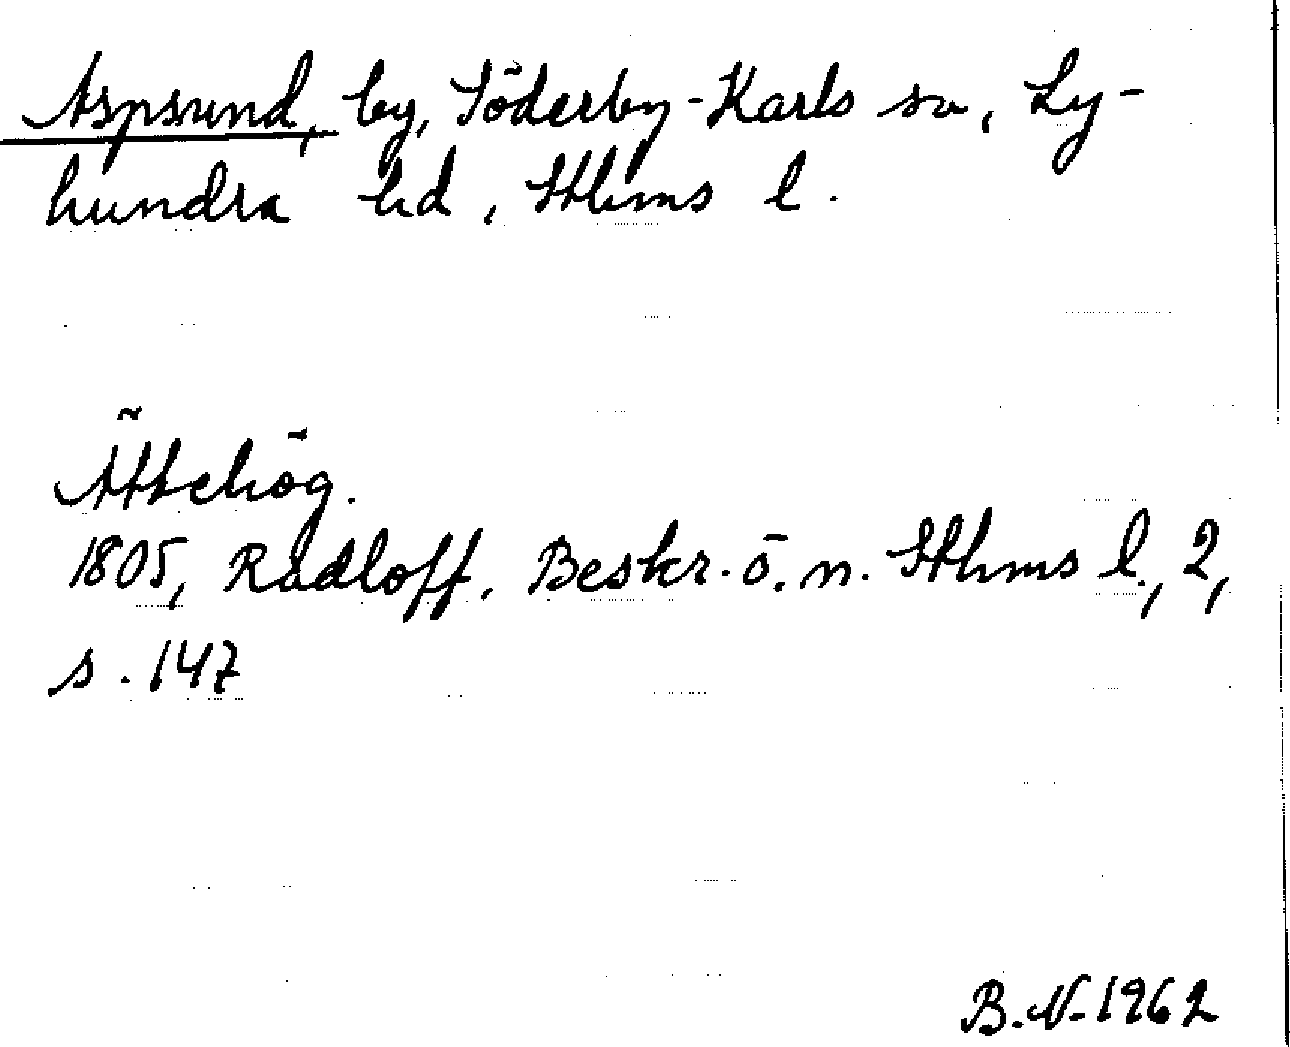 Aspsund, by, Söderby-Karls sn, Ly-
hundra hd, Sthms l.
Ättehög.
1805, Radloff, Beskr. ö. n. Sthms l., 2,
s. 147
B. N. 1962